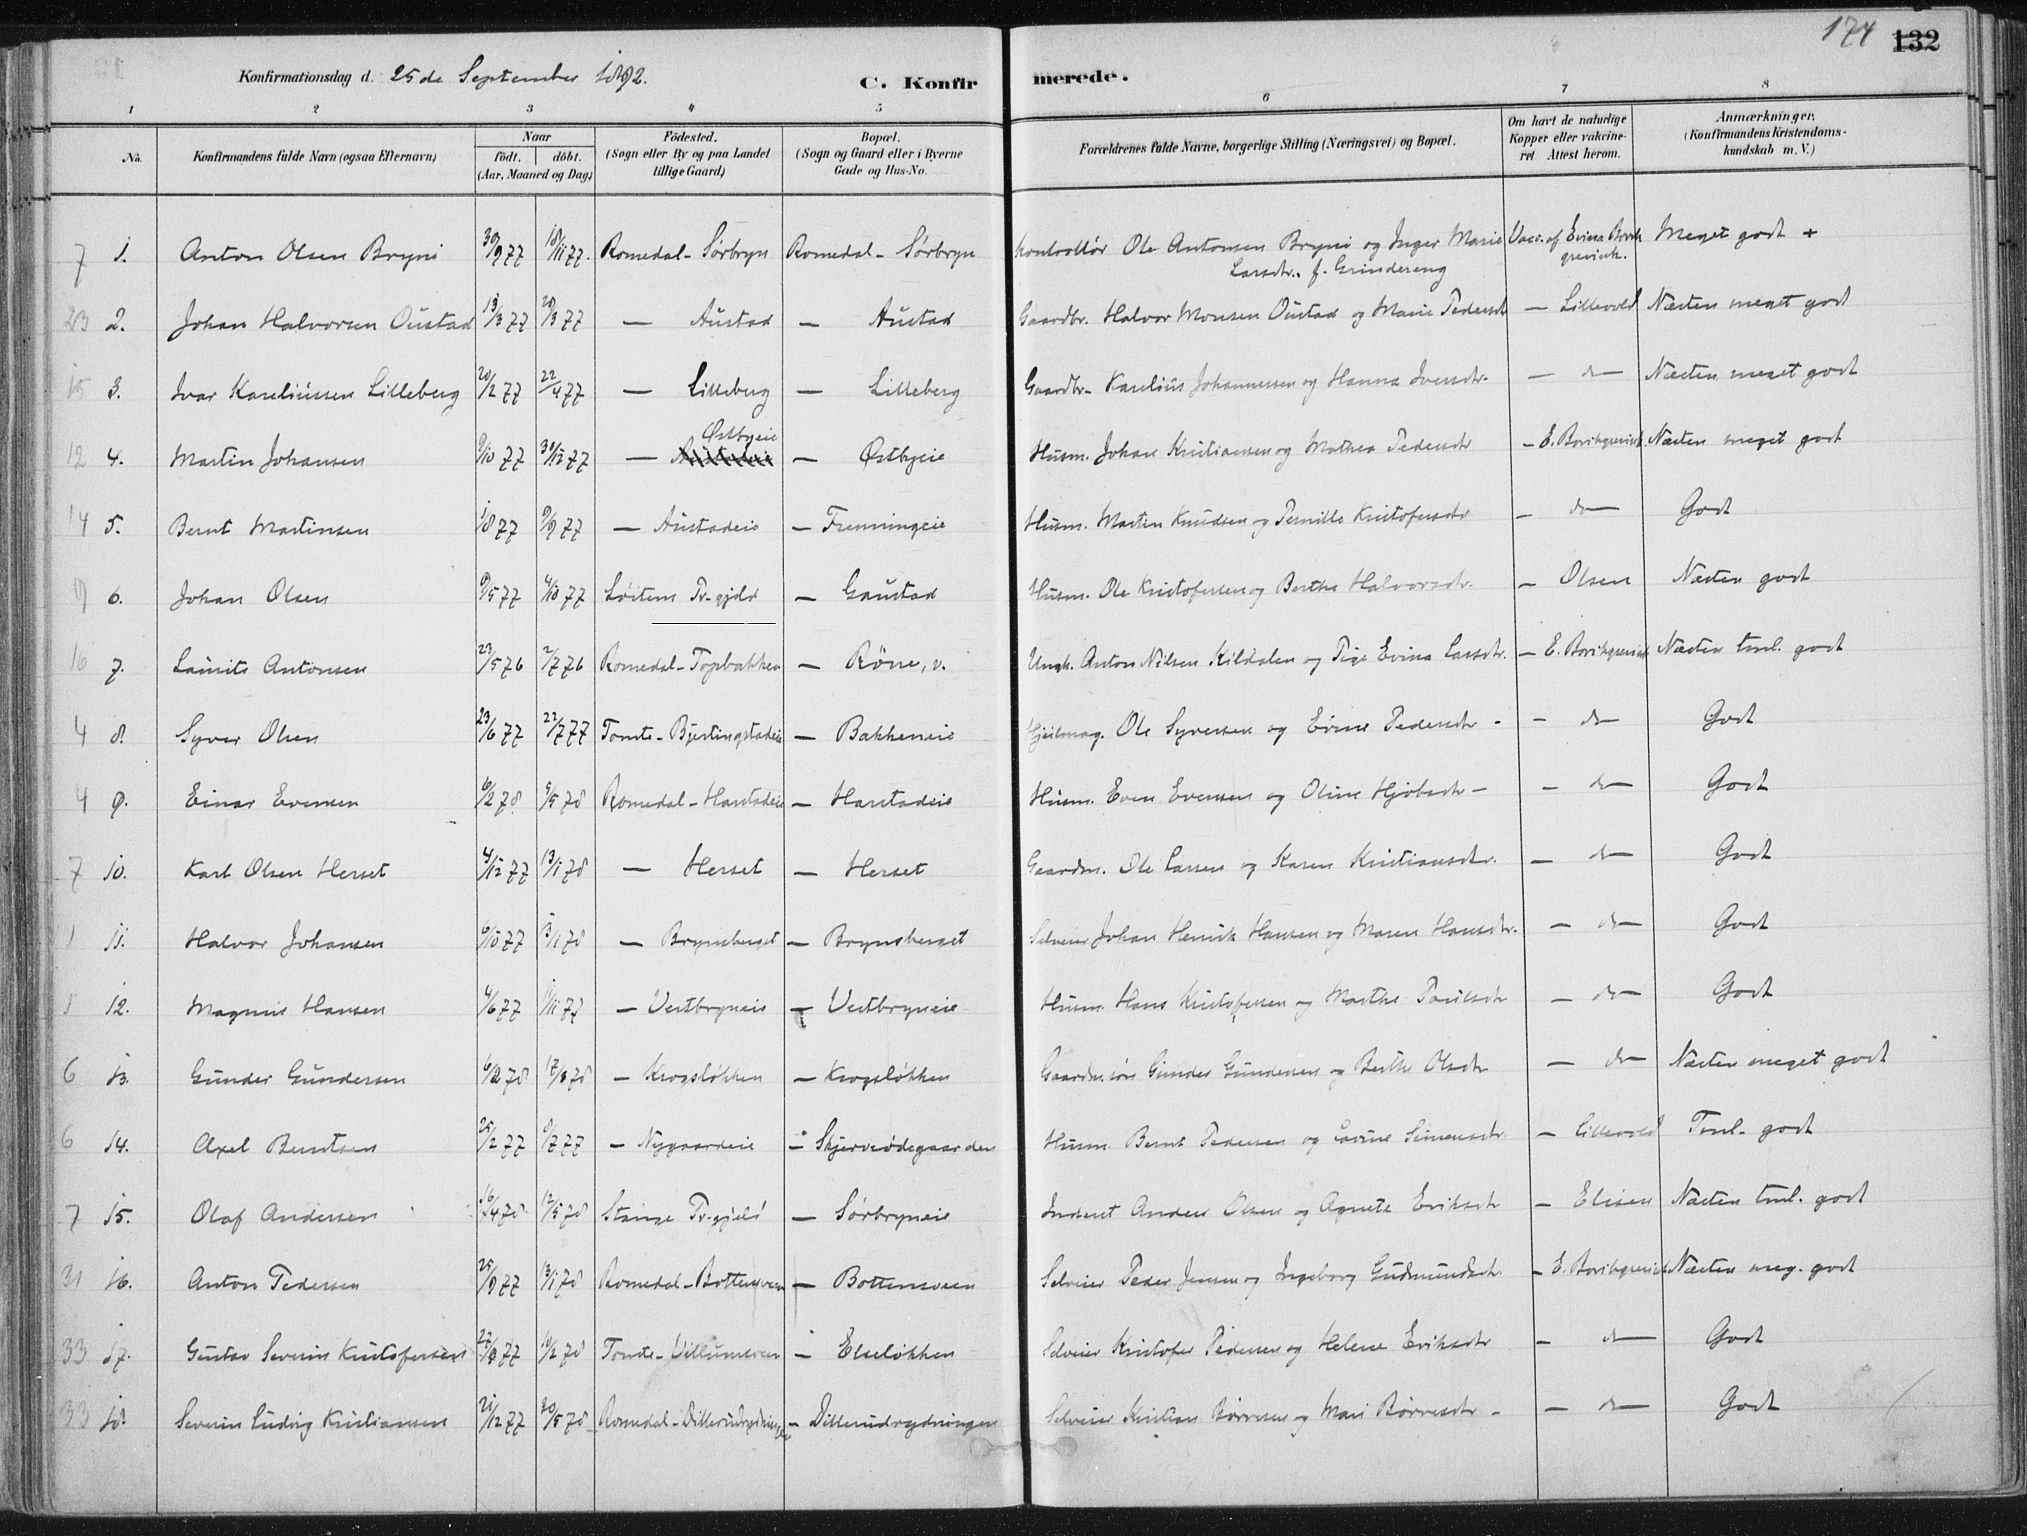 174 132
Konfirmationsdag d. 25de September 1892. C. Konfir merede.
1 2 3 4 5 6 7 8
No. Konfirmandens fulde Navn (ogsaa Efternavn) Naar født. døbt. (Aar, Maaned og Dag) Födested. (Sogn eller By og paa Landet tillige Gaard) Bopæl. (Sogn og Gaard eller i Byerne Gade og Hus-No. Forældrenes fulde Navne, borgerlige Stilling (Næringsvei) og Bopæl. Om havt de naturlige Kopper eller vakcineret Attest herom. Anmærkninger. (Konfirmandens Kristendomskundskab m. V.)
7 1. Anton Olsen Bryni 30/9 77 18/11 77. Romedal - Sörbryn Romedal - Sörbryn Kontrollör Ole Antonsen Bryni og Inger Marie Vacc. af Evina Borch Meget godt +
Larsdtr. f. Grindereng grevink.
23 2. Johan Halvorsen Oustad 13/3 77 20/3 77 — Austad — Austad Gaardbr. Halvor Monsen Oustad og Marie Pedersdtr — Lillevold Næsten meget godt
15 3. Ivar Kareliussen Lilleberg 20/2 77 22/4 77 — Lilleberg — Lilleberg Gaardbr. Karelius Johannessen og Hanna Iversdtr. — do — Næsten meget godt
Østbyeie
12 4. Martin Johansen 9/10 77 30/12 77 — — Østbyeie Husm. Johan Kristiansen og Mathea Pedersdtr — E. Borchgrevink. Næsten meget godt
14 5. Bernt Martinsen 1/8 77 9/9 77 — Austadeie — Fremmingeie Husm. Martin Knudsen og Pernille Kristofersdtr — do — Godt
9 6. Johan Olsen 9/5 77 4/10 77 Löiten Pr-gjeld — Gaustad Husm. Ole Kristofersen og Berthe Halvorsdtr. — Olsen Næsten godt
16 7. Laurits Antonsen 23/5 76 2/7 76 Romedal - Topbakken — Röne, v. Ungk. Anton Nilsen Kildalen og Pige Evina Larsdtr. — E. Borchgrevink Næsten tml. godt
4 8. Syver Olsen 23/6 77 22/7 77 Tomte - Bjertingstadeie — Bakkeneie Ole Syversen og Evine Pedersdtr - — do — Godt
4 9. Einar Evensen 6/2 78 5/5 78 Romedal - Harstadeie — Harstadeie Husm. Even Evensen og Oline — — do — Godt
7 10. Karl Olsen Herset 4/12 77 13/1 78 — Herset — Herset Gaardm. Ole Larsen og Karen Kristiansdtr. — do — Godt
1 11. Halvor Johansen 6/10 77 3/1 78 — Brynsberget — Brynsberget Selveier Johan Henrik Hansen og Maren Hansdtr. — do — Godt
1 12. Magnus Hansen 4/6 77 /11 77 — Vestbryneie — Vestbryneie Husm. Hans Kristofersen og Marthe Paulsdtr — do — Godt
6 13. Gunder Gundersen 6/2 78 17/3 78 — Krogsløkken — Krogsløkken Gaardm.sön Gunder Gundersen og Berthe Olsdtr — do — Næsten meget godt
6 14. Axel Berntsen 25/2 77 8/7 77 — Nygaardeie — Skjerveødegaarden Husm. Bernt Pedersen og Lovine Simensdtr — Lillevold Tml. godt
7 15. Olaf Andersen 16/4 78 12/5 78 Stange Pr-gjeld — Sørbryneie Inderst Anders Olsen og Agnete Eriksdtr — Elisen Næsten tml. godt
31 16. Anton Pedersen 25/9 77 13/1 78 Romedal - Bottensveen — Bottensveen Selveier Peder Jensen og Ingeborg Gudmundsdtr — E. Borchgrevink Næsten meg. godt
33 17. Gustav Severin Kristofersen 22/9 77 10/2 78 Tomte - Villumsveen — Elseløkken Selveier Kristofer Pedersen og Helene Eriksdtr — do — Godt
33 18. Severin Ludvig Kristiansen 21/12 77 20/5 78 Romedal - Dillerudrydningen — Dillerudrydningen Selveier Kristian Børresen og Mari Børresdtr — — do — Godt